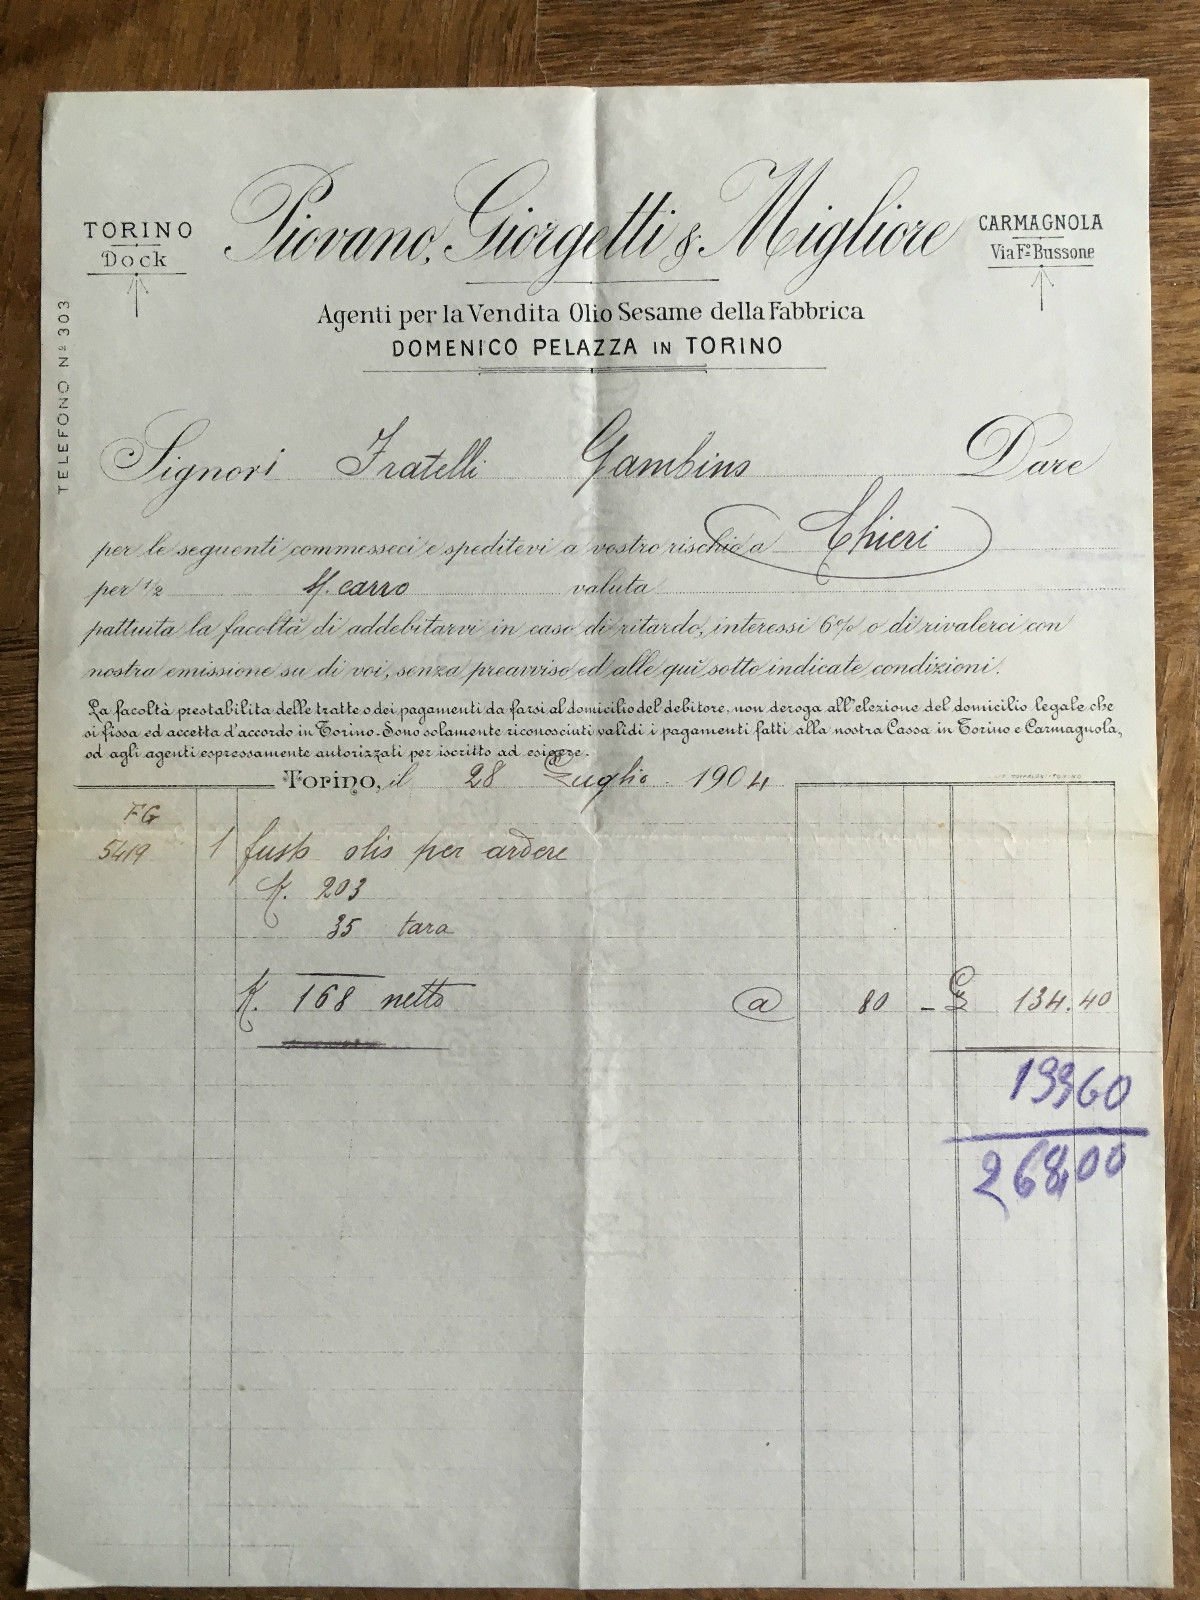 TORINO
Dock
Piovano, Giorgetti & Migliore
CARMAGNOLA
Via F.º Bussone
TELEFONO Nº 303
Agenti per la Vendita Olio Sesame della Fabbrica
DOMENICO PELAZZA IN TORINO
Signori Fratelli Gambino Dare
per le seguenti commesseci e speditevi a vostro rischio a Chieri
per ½ S/. carro valuta
pattuita la facoltà di addebitarvi in caso di ritardo, interessi 6% o di rivalerci con
nostra emissione su di voi, senza preavviso ed alle qui sotto indicate condizioni.
La facoltà prestabilita delle tratte o dei pagamenti da farsi al domicilio del debitore, non deroga all'elezione del domicilio legale che
si fissa ed accetta d'accordo in Torino. Sono solamente riconosciuti validi i pagamenti fatti alla nostra Cassa in Torino e Carmagnola,
od agli agenti espressamente autorizzati per iscritto ad esigere.
Torino, il 28 Luglio 1904
FG
5419 1 fusto olio per ardere
K. 203
35 tara
K. 168 netto @ 80 - £ 134.40
133 60
268,00